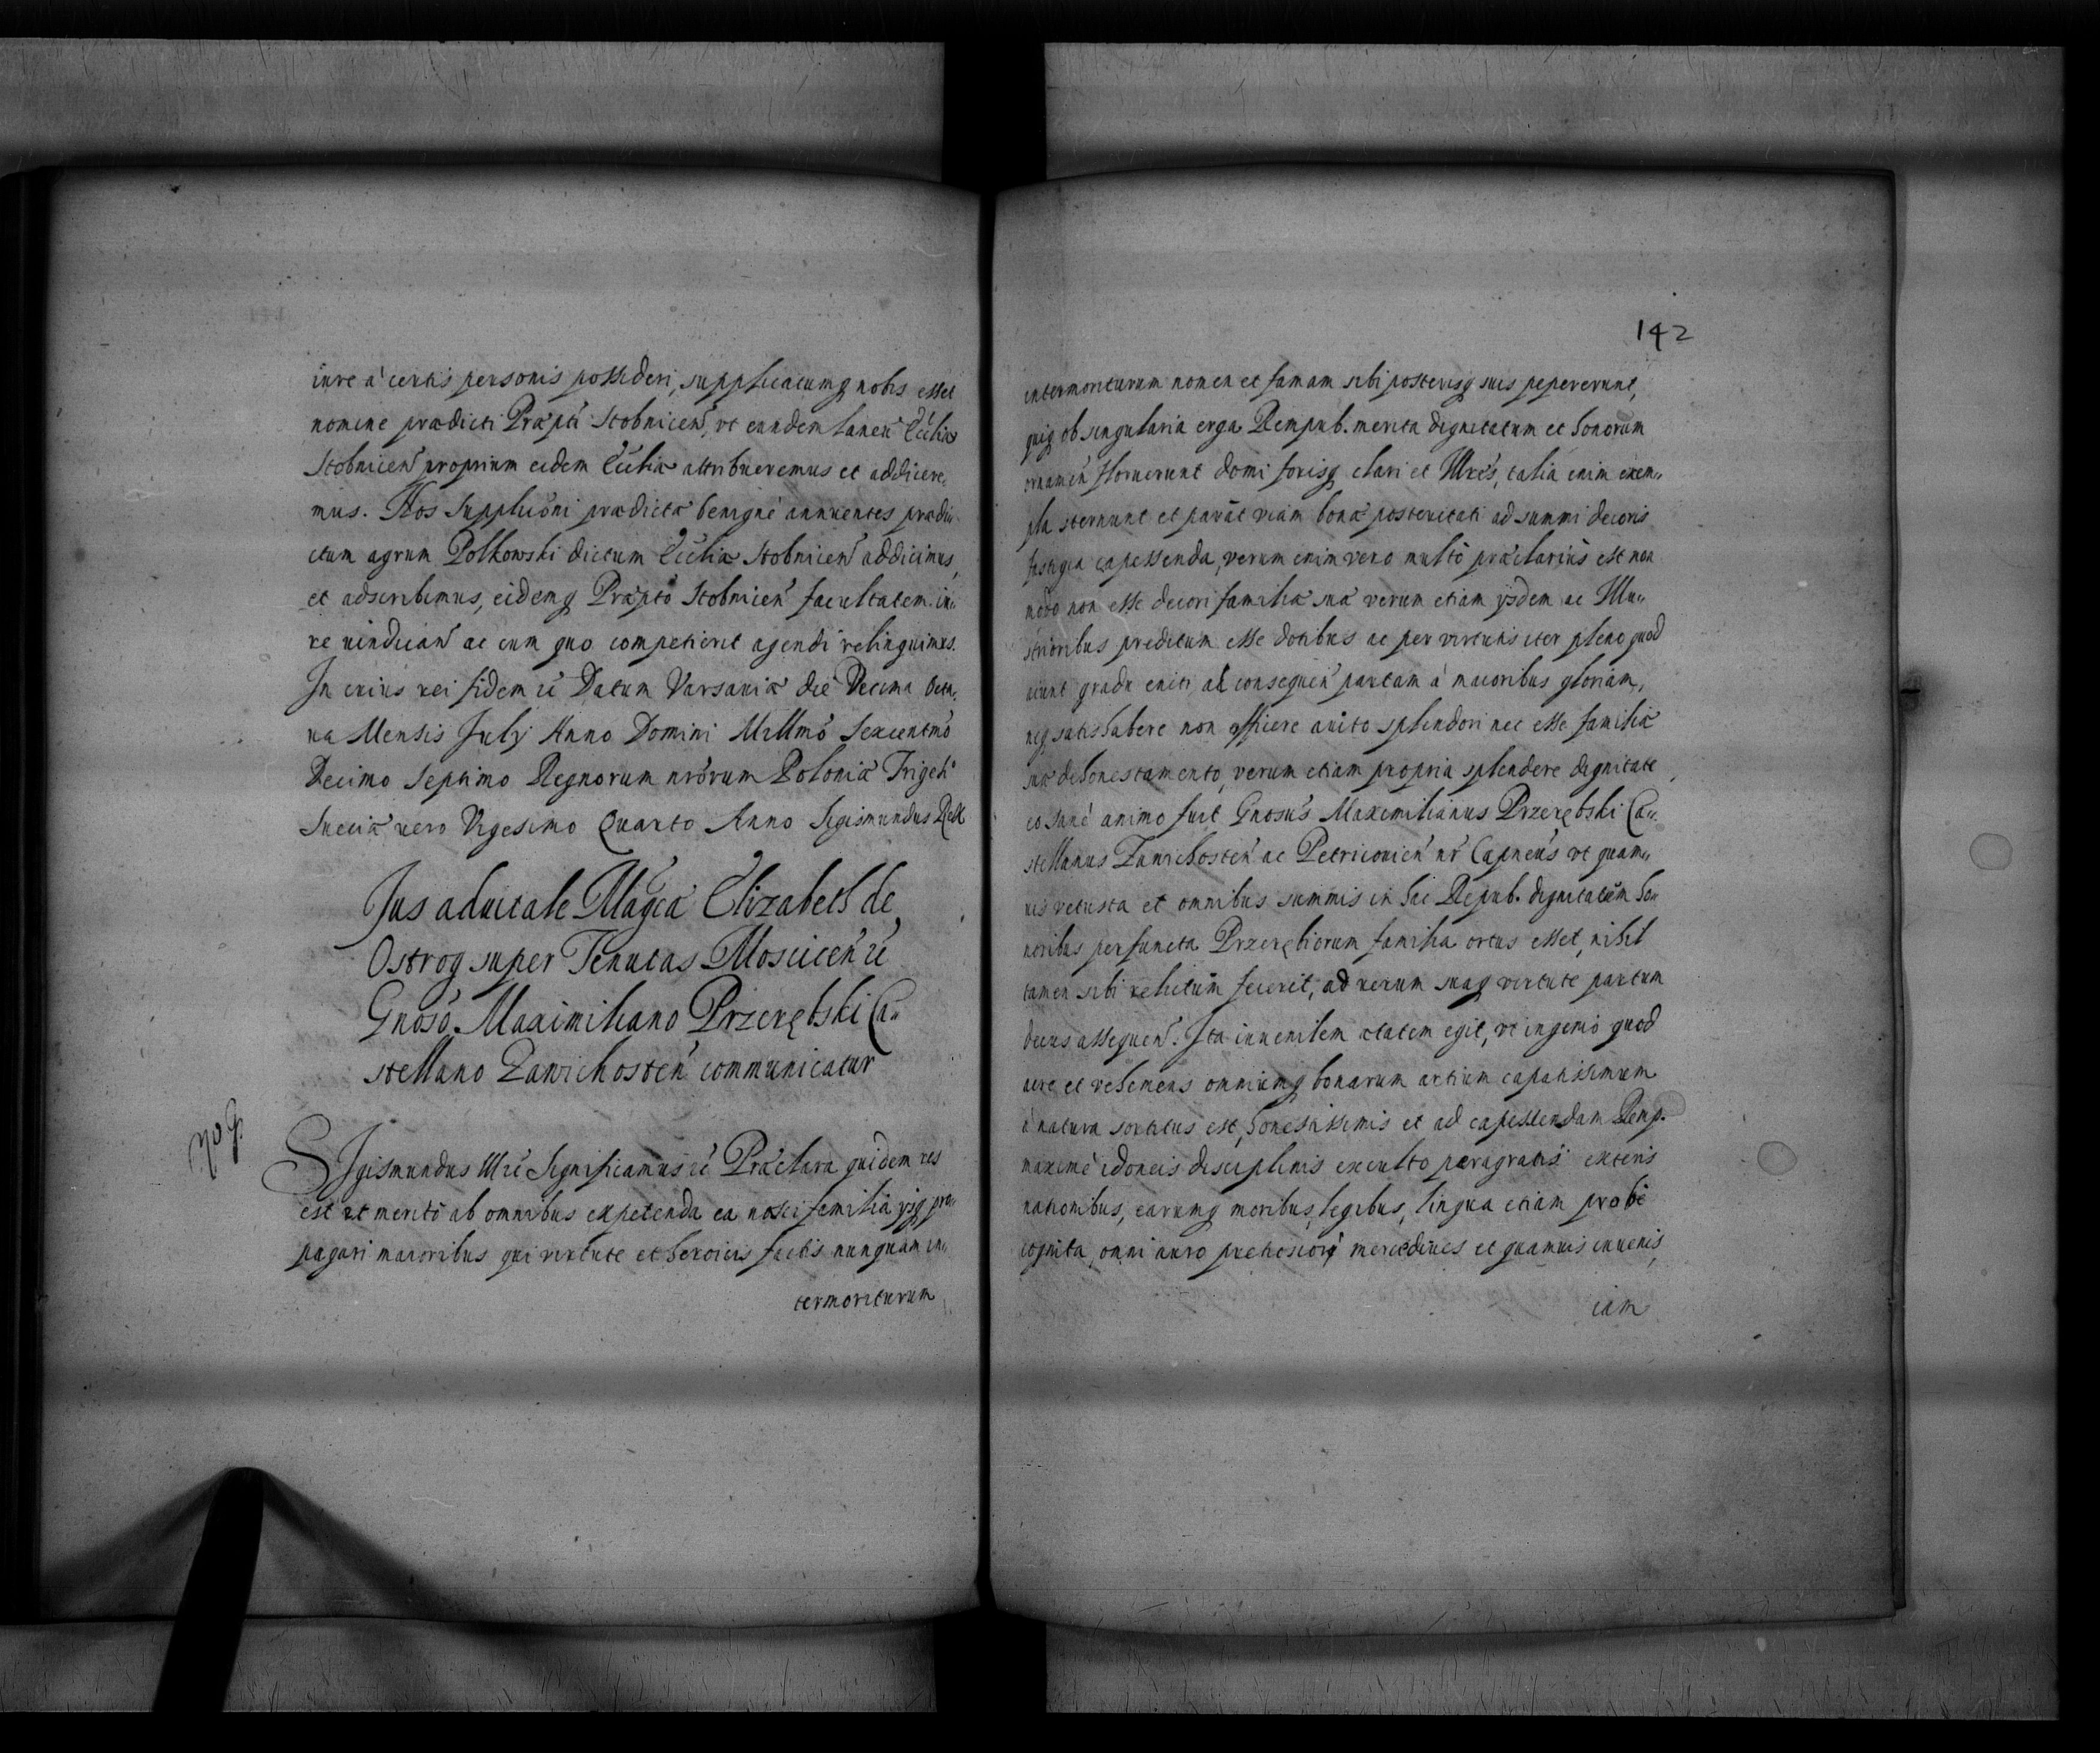 iure à certis personis possideri, supplicatumq nobis esset
nomine prædicti Præpti Stobnicen, vt eundem laneu Ecclia
Stobnicen proprium eidem Ecclia attribueremus et addicere,
mus. Nos supplicõni prædicta benignè annuentes prædi„
ctum agrum Polkowski dictum Ecclia Stobnicen addicimus,
et adscribimus, eidemq Præpto Stobnicen facultatem iu„
re vindican ac cum quo competierit agendi relinquimus.
In cuius rei fidem &c Datum Varsauia die Decima Octa„
ua Mensis July Anno Domini Millmo Sexcentmo
Decimo Septimo Regnorum nrorum Polonia Trigeō
Suecia vero Vigesimo Quarto Anno Sigismundus Rex
Jus aduitale Magca Elizabeth de
Ostrog super Tenutas Moscicen &c
Gnoso Maximiliano Przerębski Ca„
stellano Zawichosten communicatur
Sigismundus III &c Significamus &c Præclara quidem res
est et meritò ab omnibus expetenda ea nasci familia ijsq pro„
pagari maioribus qui virtute et heroicis factis nunquam in„
termoriturum
142
intermoriturum nomen et famam sibi posterisq suis pepererunt,
quiq ob singularia erga Rempub. merita dignitatum et honorum
ornamen floruerunt domi forisq clari et Illres, talia enim exem„
pla sternunt et parāt viam bona posteritati ad summi decoris
fastigia capessenda, verum enim vero multò præclarius est non
modo non esse decori familia sua verum etiam ijsdem ac Illu„
strioribus preditum esse dotibus ac per virtutis iter pleno quod
aiunt gradu eniti ad consequen partam à maioribus gloriam,
neq satis habere non officere auito splendori nec esse familia
sua dehonestamento, verum etiam propria splendere dignitate,
eo sanè animo fuit Gnosus Maximilianus Przerębski Ca„
stellanus Zawichosten ac Petricouien nr Capneus vt quam„
uis vetusta et omnibus summis in hac Repub. dignitatum ho„
noribus perfuncta Przerębiorum familia ortus esset, nihil
tamen sibi relictum fecerit, ad verum suaq virtute partum
decus assequen. Ita iuuenilem ætatem egit, vt ingenio quod
acre et vehemens omniumq bonarum artium capatissimum
à natura sortitus est, honestissimis et ad capessendam Remp.
maximè idoneis disciplinis exculto peragratis exteris
nationibus, earumq moribus, legibus, lingua etiam probè
cognita, omni auro pretiosiori merce diues et quamuis iuuenis,
iam